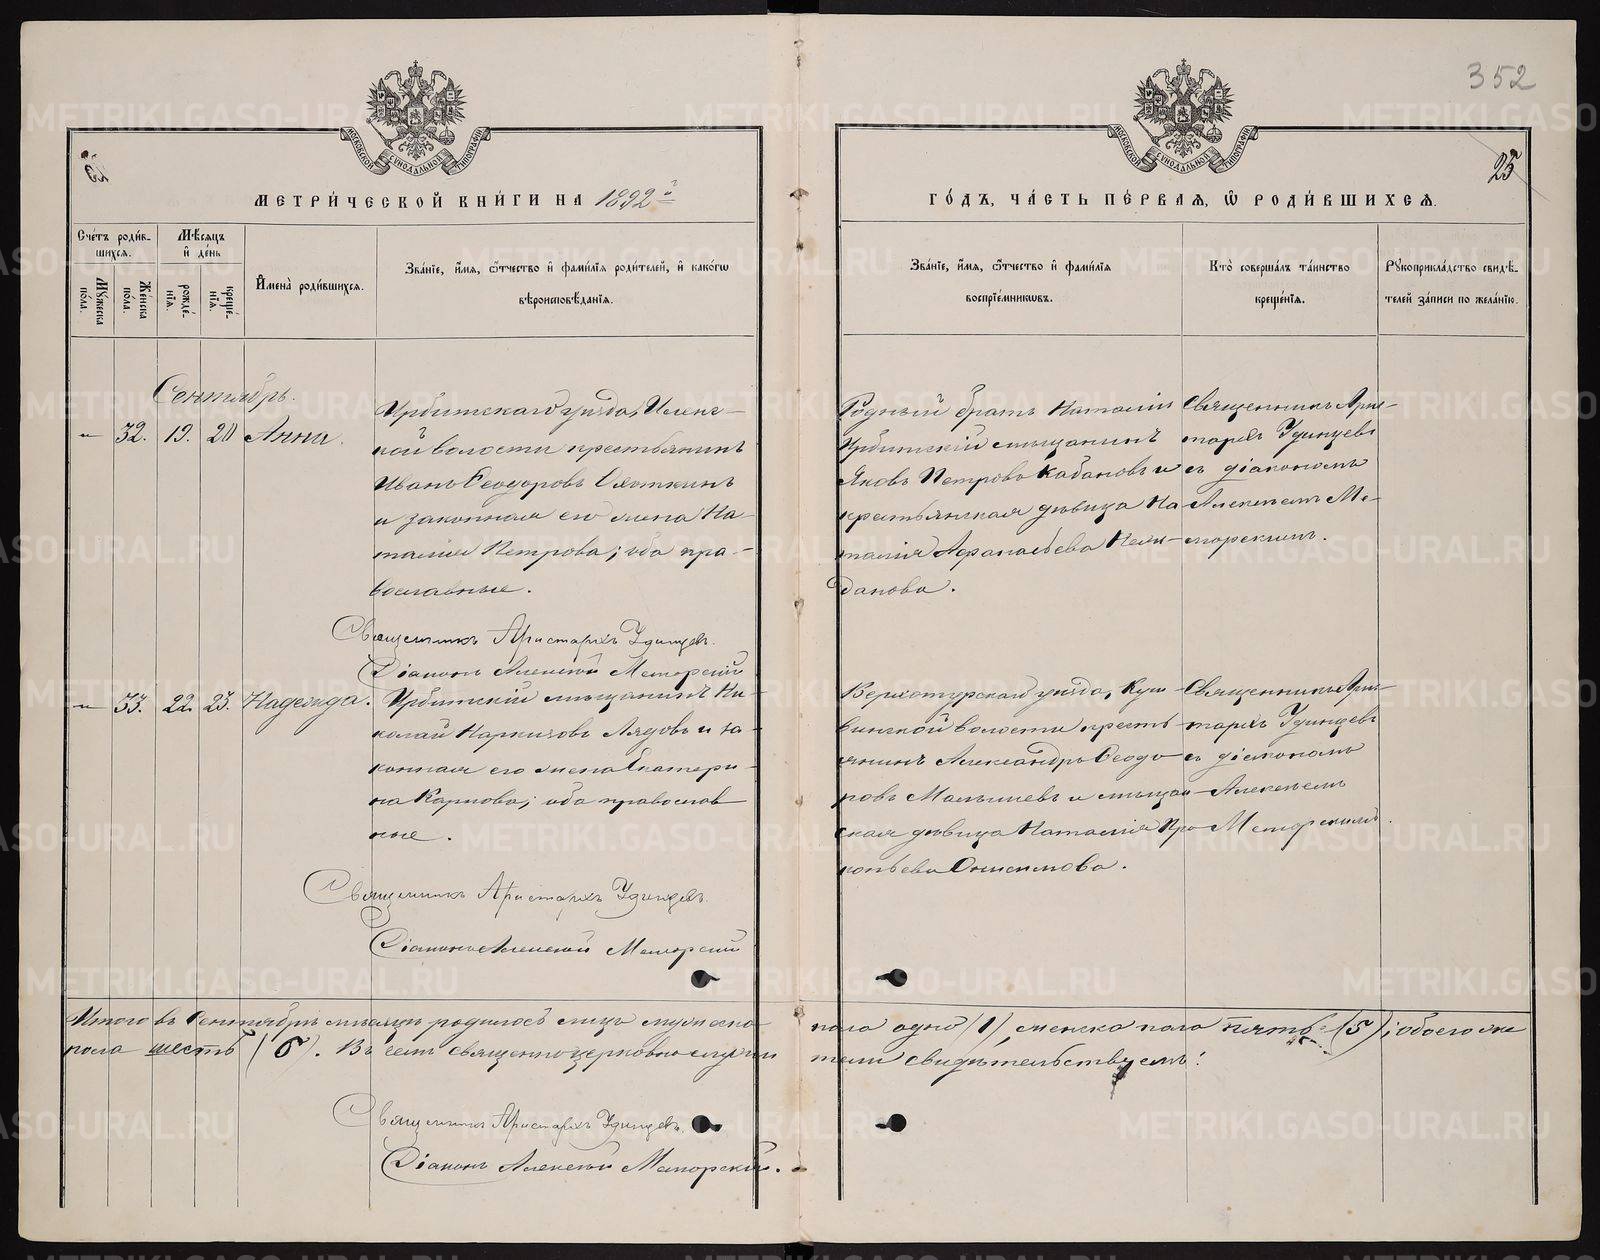 352
25
МЕТРИ́ЧЕСКОЙ КНИ́ГИ НА 1892й
ГО́ДЪ, ЧА́СТЬ ПЕ́РВАЯ, Ѿ РОДИ́ВШИХСЯ.
Сче́тъ роди́вшихся.
Мѣ́сяцъ и́ де́нь
Му́жеска по́ла.
Же́нска по́ла.
рожде́нїя.
креще́нїя.
И҆мена̀ роди́вшихся.
Зва́нїе, и҆́мя, ѻ҆́тчество и҆ фами́лїя роди́телей, и҆ како́гѡ
вѣроисповѣ́данїя.
Зва́нїе, и҆́мя, ѻ҆́тчество и҆ фами́лїя
воспрїе́мниковъ.
Кто̀ соверша́лъ та́инство
креще́нїя.
Рукоприкла́дство свидѣ́-
телей за́писи по жела́нїю.
Сентябрь.
„ 32. 19. 20 Анна.
Ирбитскаго уѣзда, Иленс-
кой волости крестьянинъ
Иванъ Ѳеодоровъ Охоткинъ
и законная его жена На-
талія Петрова; оба пра-
вославные.
Священникъ Аристархъ Удинцевъ.
Діаконъ Алексѣй Меморскій
Родный братъ Наталіи
Ирбитскій мѣщанинъ
Яковъ Петровъ Кабановъ и
крестьянская дѣвица На-
талія Аѳанасьева
данова.
Священникъ Арис-
тархъ Удинцевъ
съ діакономъ
Алексѣемъ Ме-
морскимъ.
„ 33. 22. 23. Надежда.
Ирбитскій мѣщанинъ Ни-
колай Наркисовъ Лядовъ и за-
конная его жена Екатери-
на Карпова; оба православ-
ные.
Священникъ Аристархъ Удинцевъ.
Діаконъ Алексѣй Меморскій
Верхотурскаго уѣзда, Куш-
винской волости кресть-
янинъ Александръ Ѳеодо-
ровъ Малышевъ и мѣщан-
ская дѣвица Наталія Про-
копьева Онисимова.
Священникъ Арис-
тархъ Удинцевъ
съ діакономъ
Алексѣемъ
Меморскимъ.
Итого въ Сентябрѣ мѣсяцѣ родилось лицъ мужеска пола одно (1), женска пола пять (5); обоего же
пола шесть (6). Въ семъ священно-церковно-служители свидѣтельствуемъ:
Священникъ Аристархъ Удинцевъ.
Діаконъ Алексѣй Меморскій.